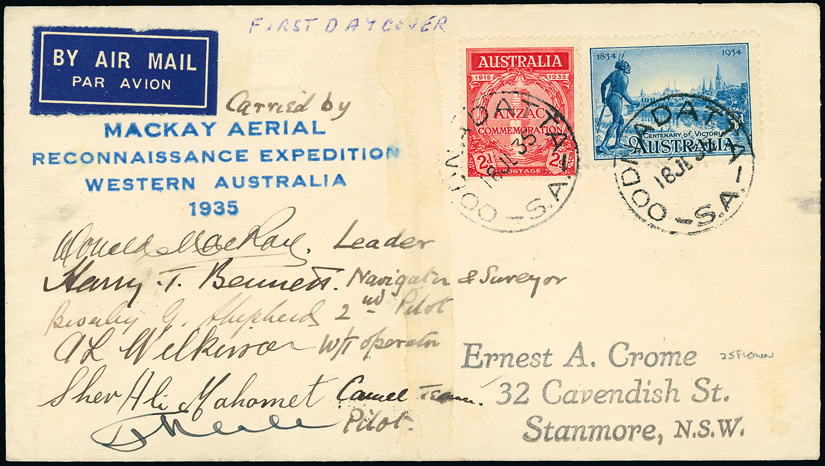 FIRST DAY COVER
BY AIR MAIL
PAR AVION
AUSTRALIA
1915 1935
ANZAC
COMMEMORATION
2D 2D
POSTAGE
1834 1934
CENTENARY OF VICTORIA
AUSTRALIA
OODNADATTA
18 JL 35
S.A.
OODNADATTA
18 JL 35
S.A.
Carried by
MACKAY AERIAL
RECONNAISSANCE EXPEDITION
WESTERN AUSTRALIA
1935
Donald Mackay. Leader
Harry T. Bennett. Navigator & Surveyor
Beverley G. Shepherd 2nd Pilot
A L Wilkinson W/T operator
Sher Ali Mahomet Camel Team.
Pilot.
Ernest A. Crome
32 Cavendish St.
Stanmore, N.S.W.
25 FLOWN